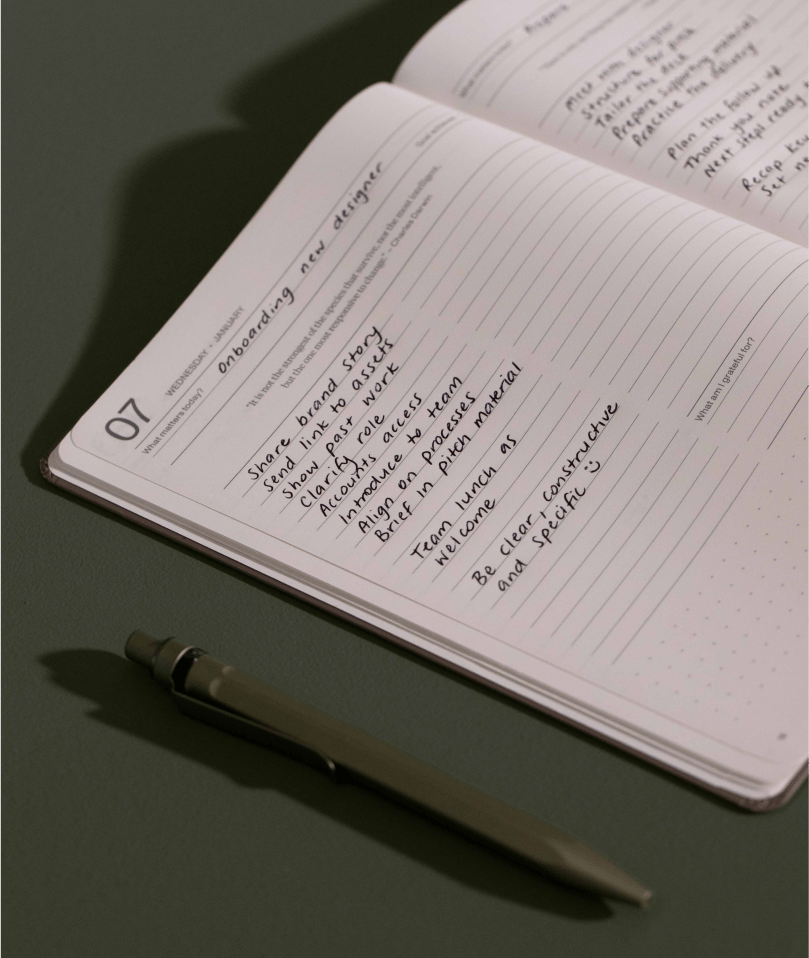 07
WEDNESDAY • JANUARY
What matters today?
onboarding new designer
"It is not the strongest of the species that survive, not the most intelligent,
but the one most responsive to change." – Charles Darwin
Share brand story
Send link to assets
Show past work
Clarify role
Accounts access
Introduce to team
Align on processes
Brief in pitch material
Team lunch as
welcome
Be clear, constructive
and specific :)
What am I grateful for?
Meet with designer
Structure for pitch
Tailor the deck
Prepare supporting material
Practise the delivery
Plan the follow up
Thank you note
Next steps ready t
Recap key
Set ne